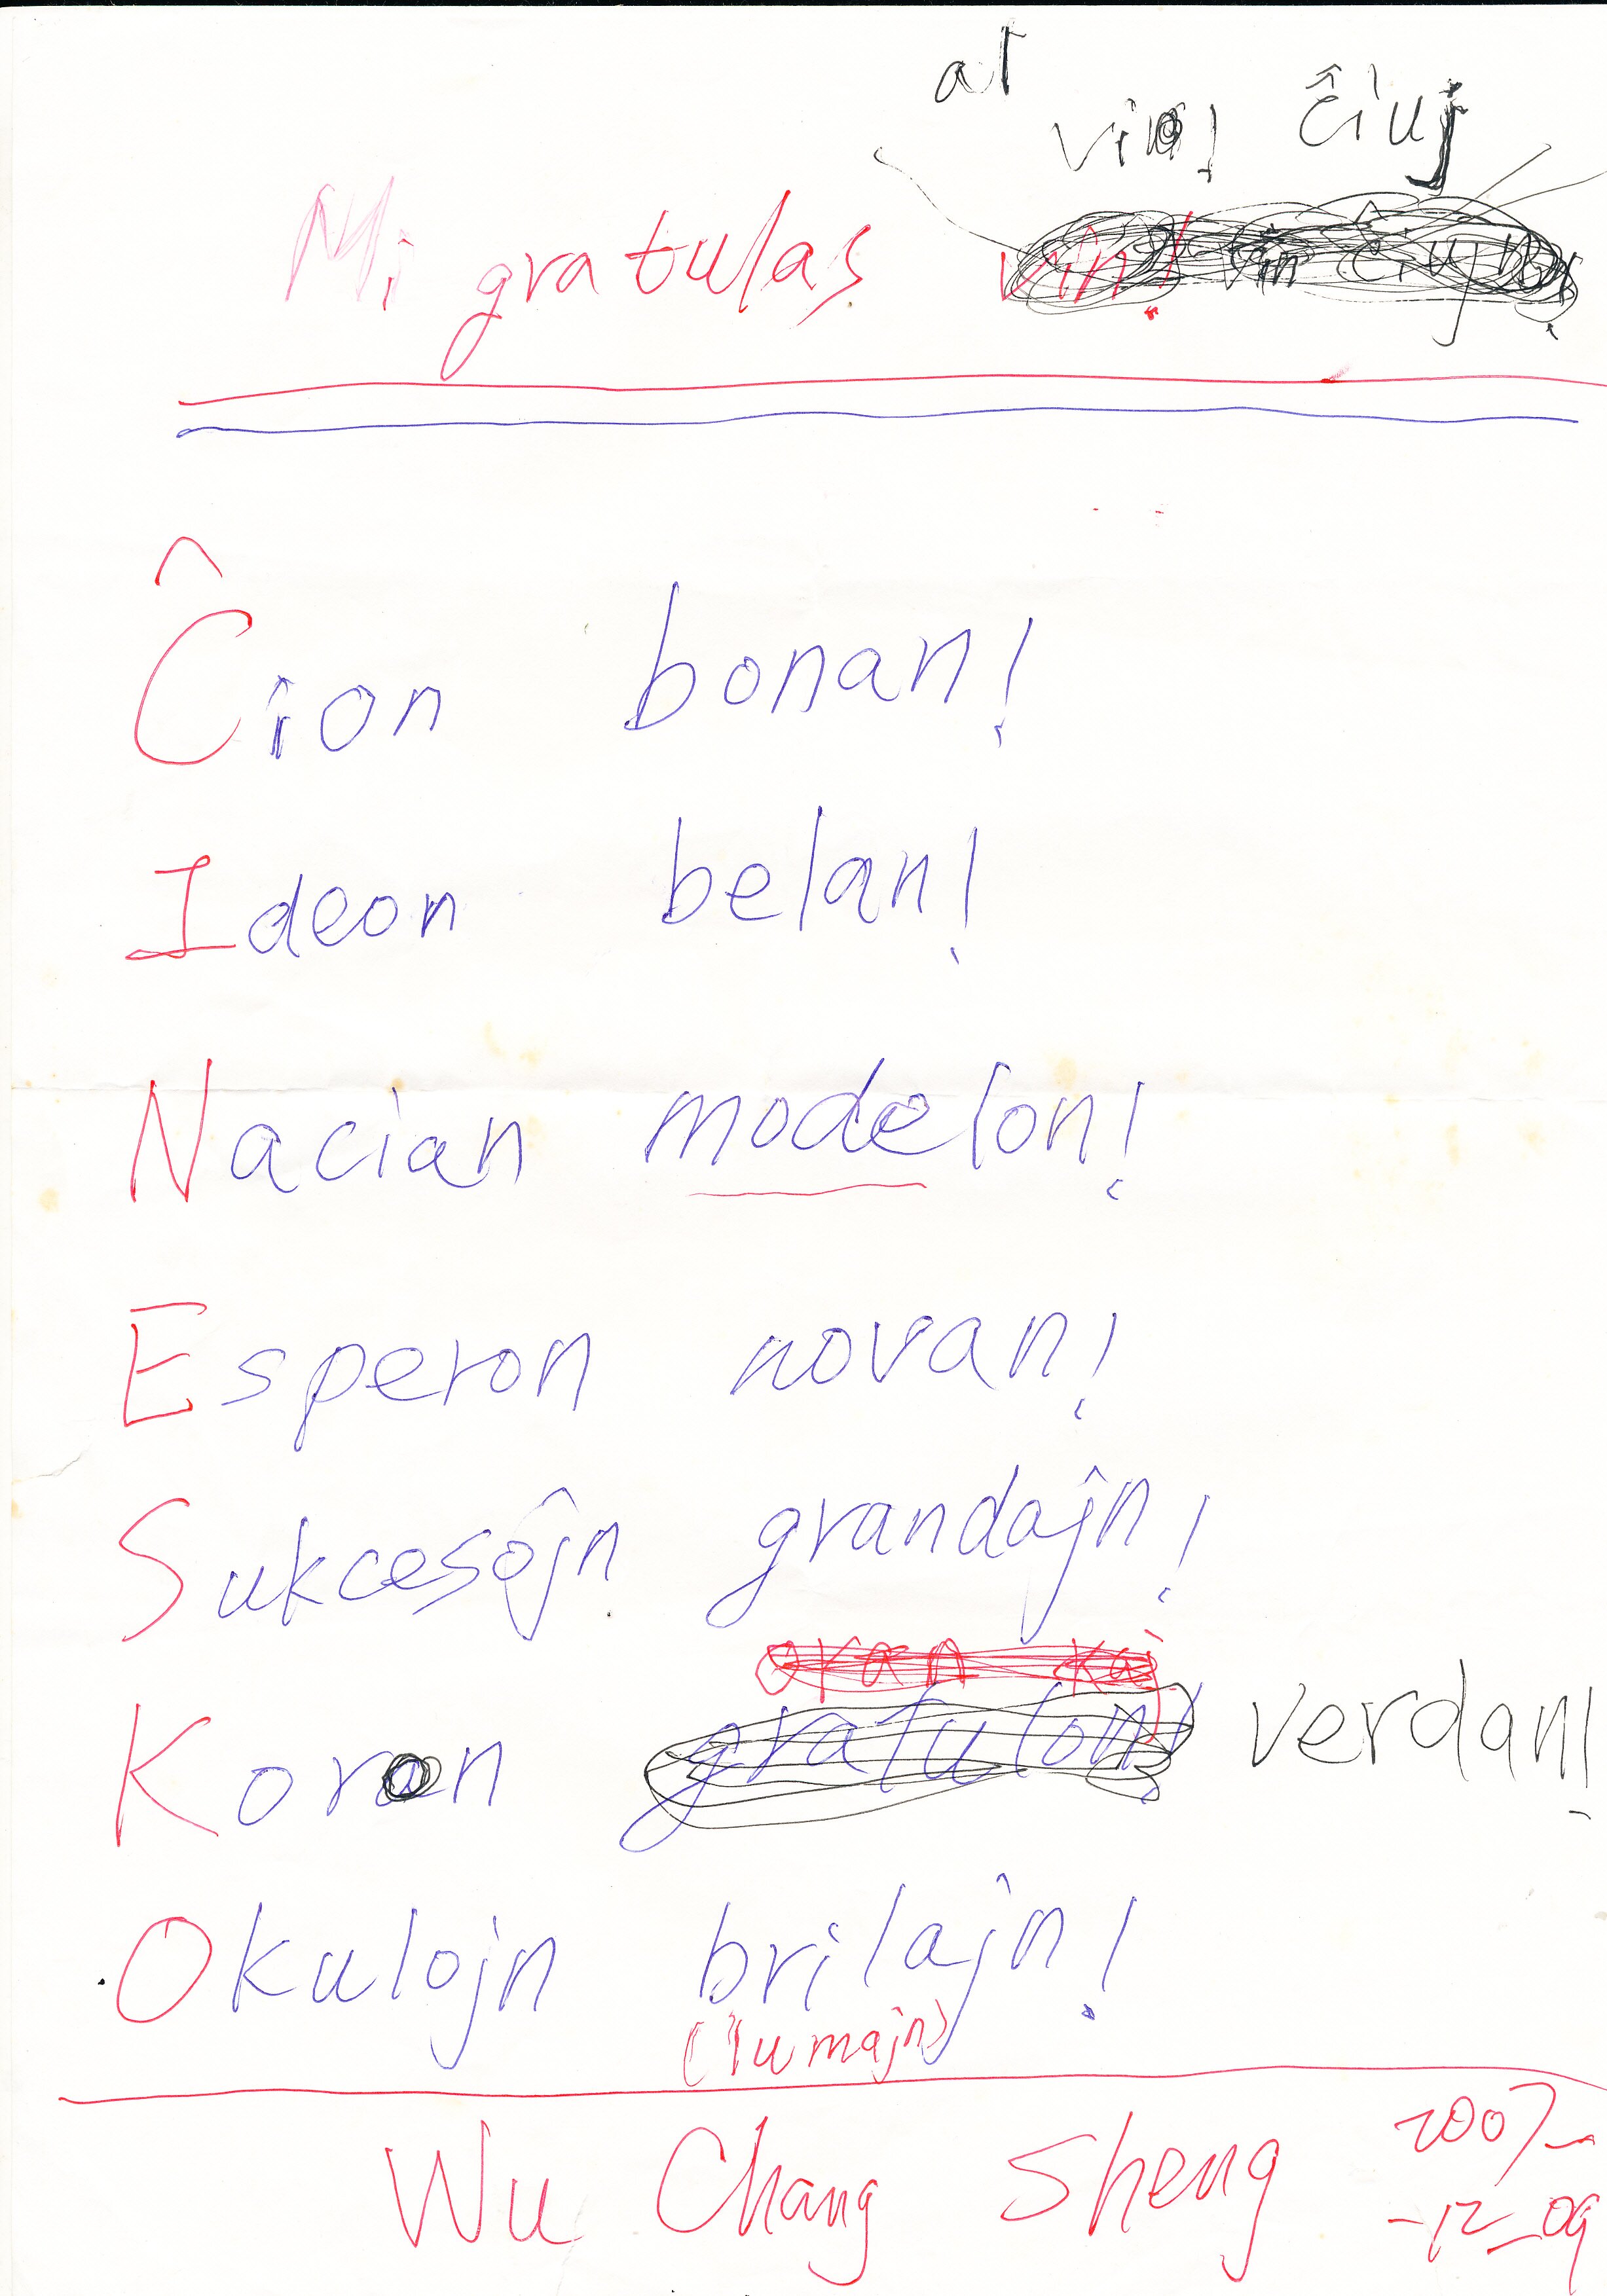 al
vi! ĉiuj
Mi gratulas vin! vin ĉiuj
Ĉion bonan!
Ideon belan!
Nacian modelon!
Esperon novan!
Sukcesojn grandajn!
oran kaj
Koron gratulon! verdan!
Okulojn brilajn!
(lumajn)
Wu Chang Sheng 2007-
-12-09